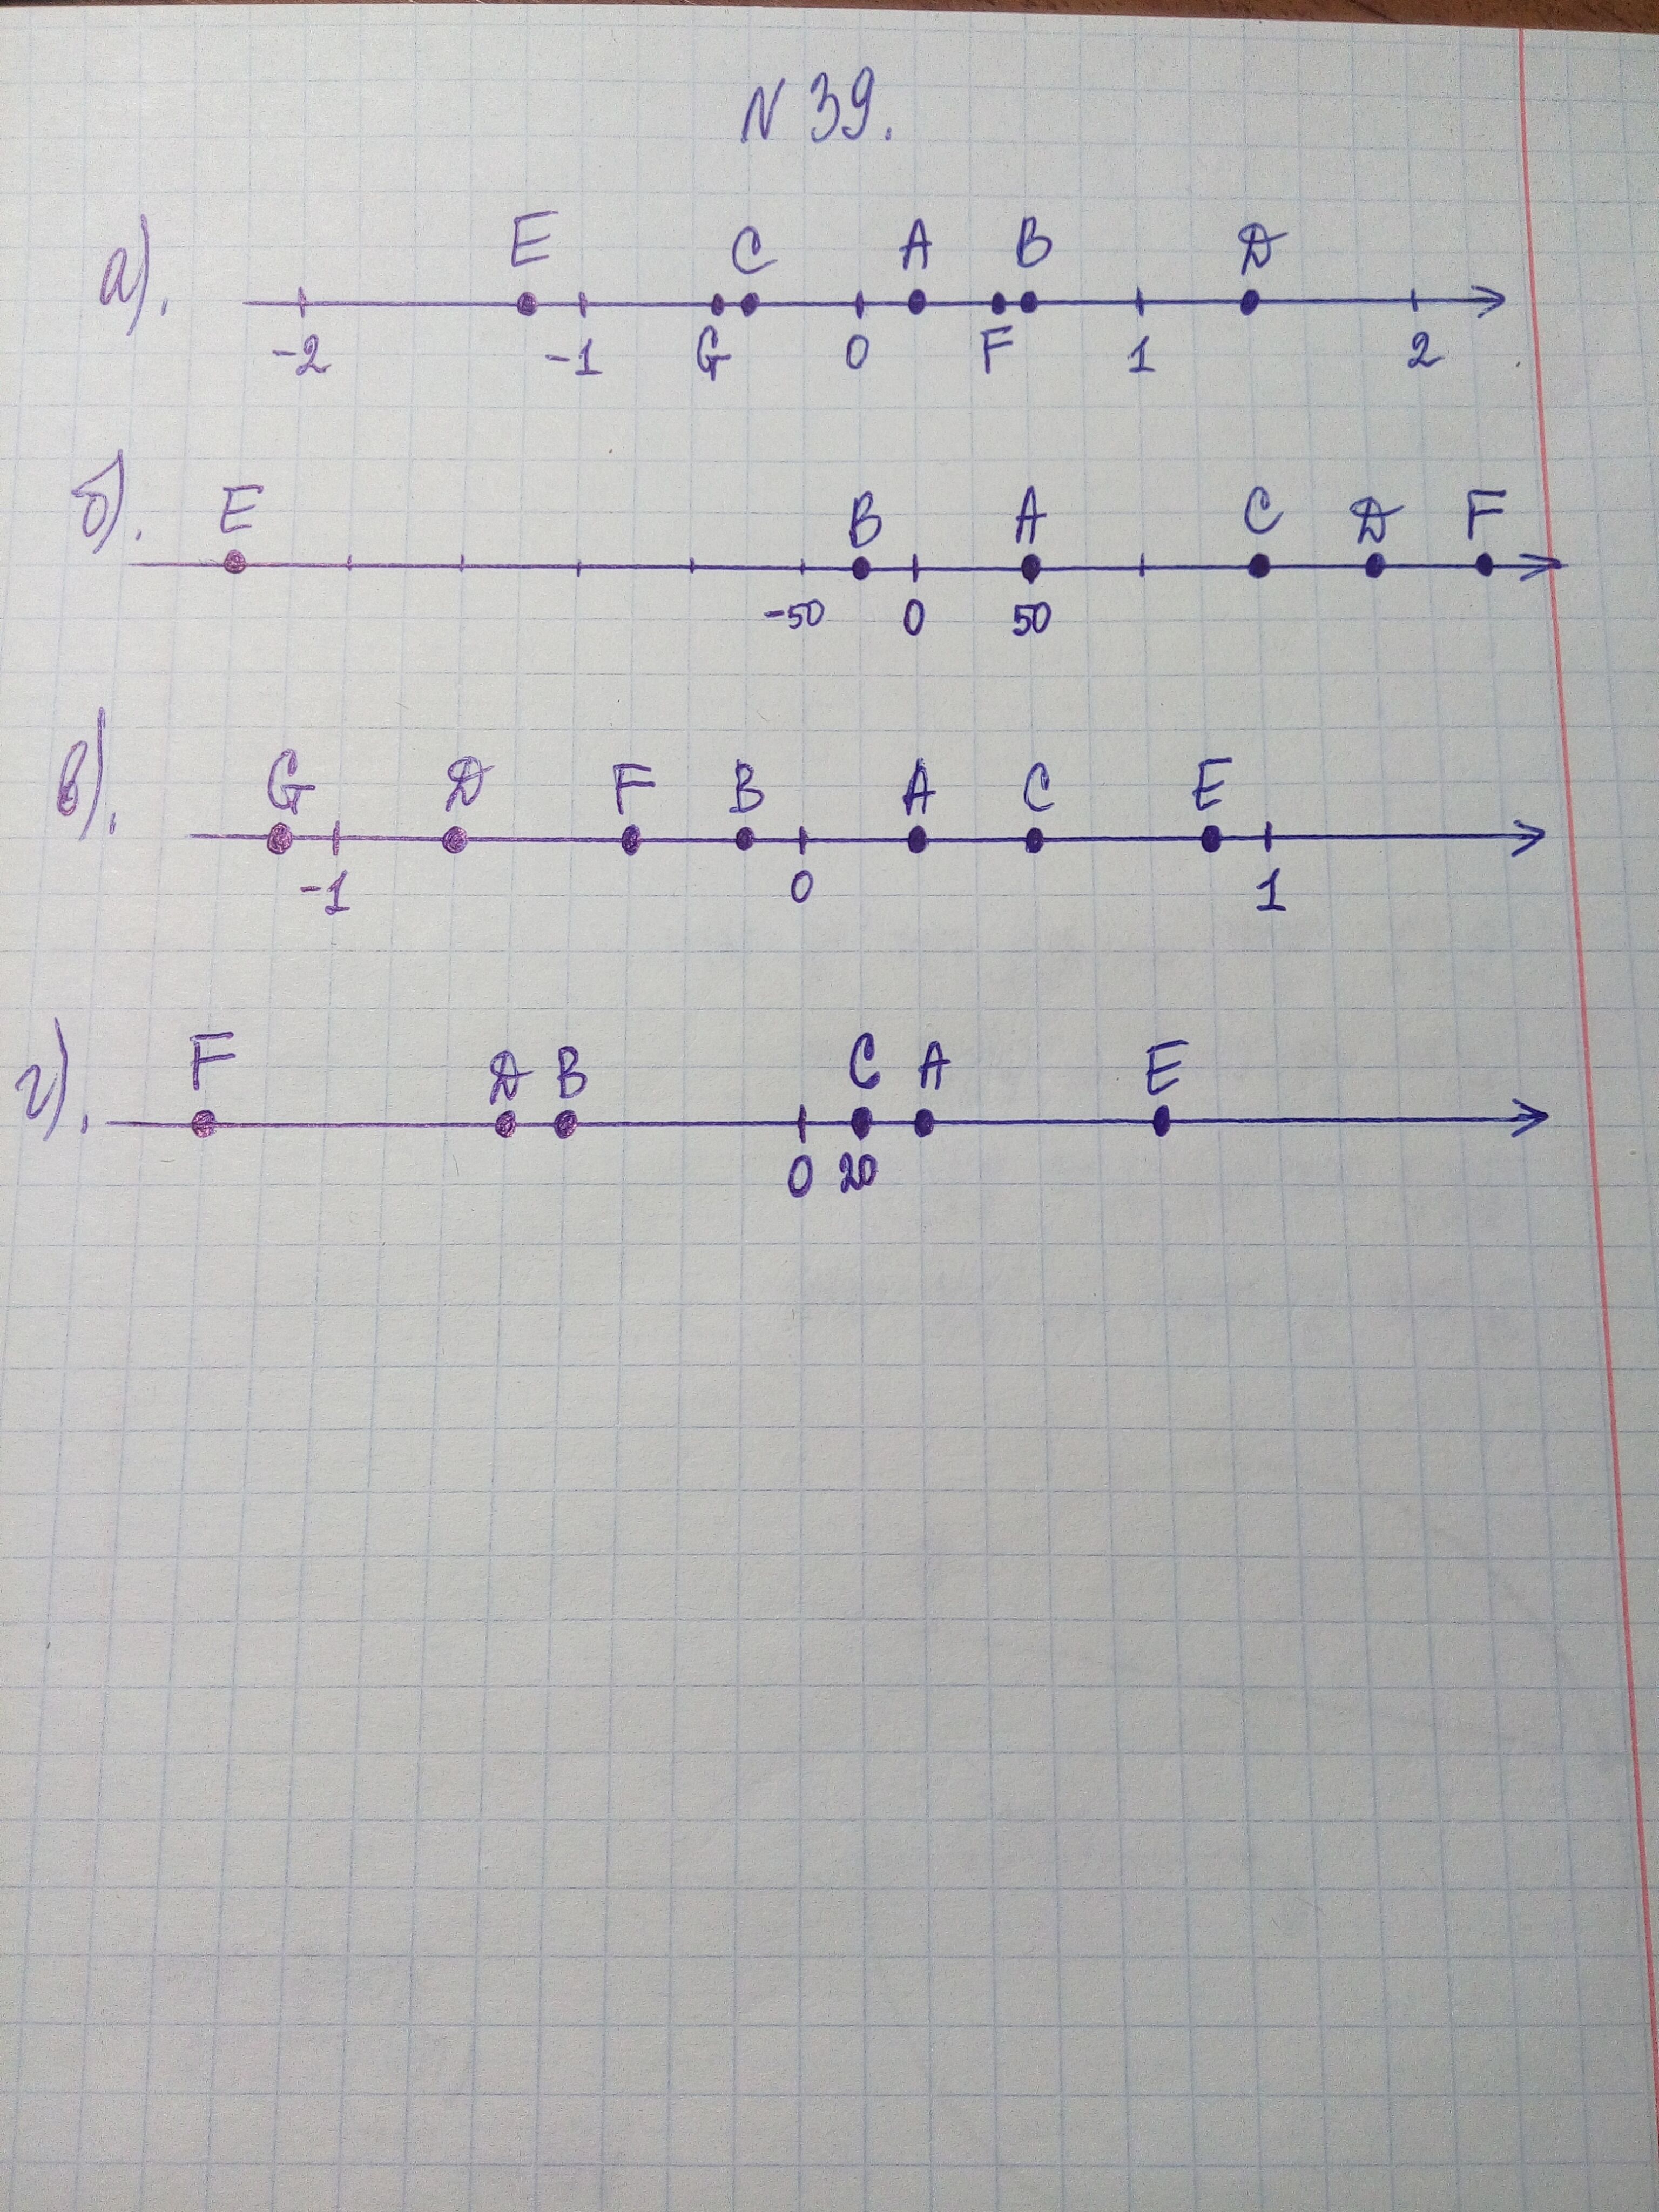 N 39.
а). E C A B D
-2 -1 G 0 F 1 2
б). E B A C D F
-50 0 50
в). G D F B A C E
-1 0 1
г). F D B C A E
0 20